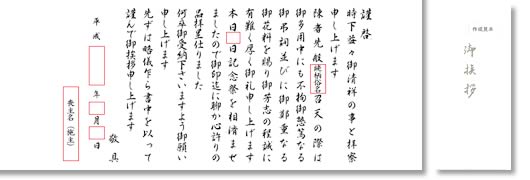 謹啓
時下益々御清祥の事と拝察
申し上げます
陳者先般続柄俗名召天の際は
御多用中にも不拘御懇篤なる
御弔詞並びに御鄭重なる
御花料を賜り御芳志の程誠に
有難く厚く御礼申し上げます
本日 日記念祭を相済ませ
ましたので御印迄に聊か心許りの
品拝呈仕りました
何卒御受納下さいますよう御願い
申し上げます
先ずは略儀乍ら書中を以って
謹んで御挨拶申し上げます
敬具
平成 年 月 日
喪主名(施主)
御挨拶